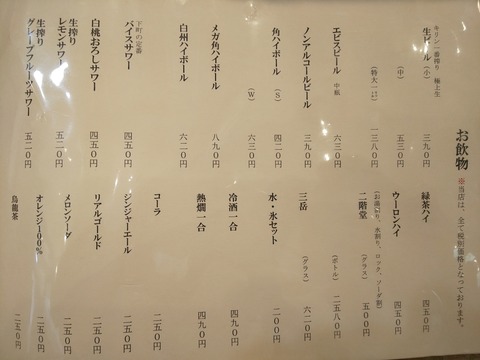 お飲物 ※当店は、全て税別価格となっております。
キリン一番搾り 極上生
生ビール（小） 三九０円
（中） 五三０円
（特大一㍑） 一三八０円
エビスビール 中瓶 六三０円
ノンアルコールビール 三九０円
角ハイボール（S） 四二０円
（W） 六三０円
メガ角ハイボール 八九０円
白州ハイボール 六二０円
下町の定番
バイスサワー 四五０円
白桃おろしサワー 四五０円
生搾り
レモンサワー 五二０円
生搾り
グレープフルーツサワー 五二０円
緑茶ハイ 四五０円
ウーロンハイ 四五０円
（お湯割り、水割り、ロック、ソーダ割）
二階堂 （グラス） 五００円
（ボトル） 二五八０円
三岳 （グラス） 六二０円
水・氷セット 二００円
冷酒一合 四九０円
熱燗一合 四九０円
コーラ 二五０円
ジンジャーエール 二五０円
リアルゴールド 二五０円
メロンソーダ 二五０円
オレンジ100% 二五０円
烏龍茶 二五０円